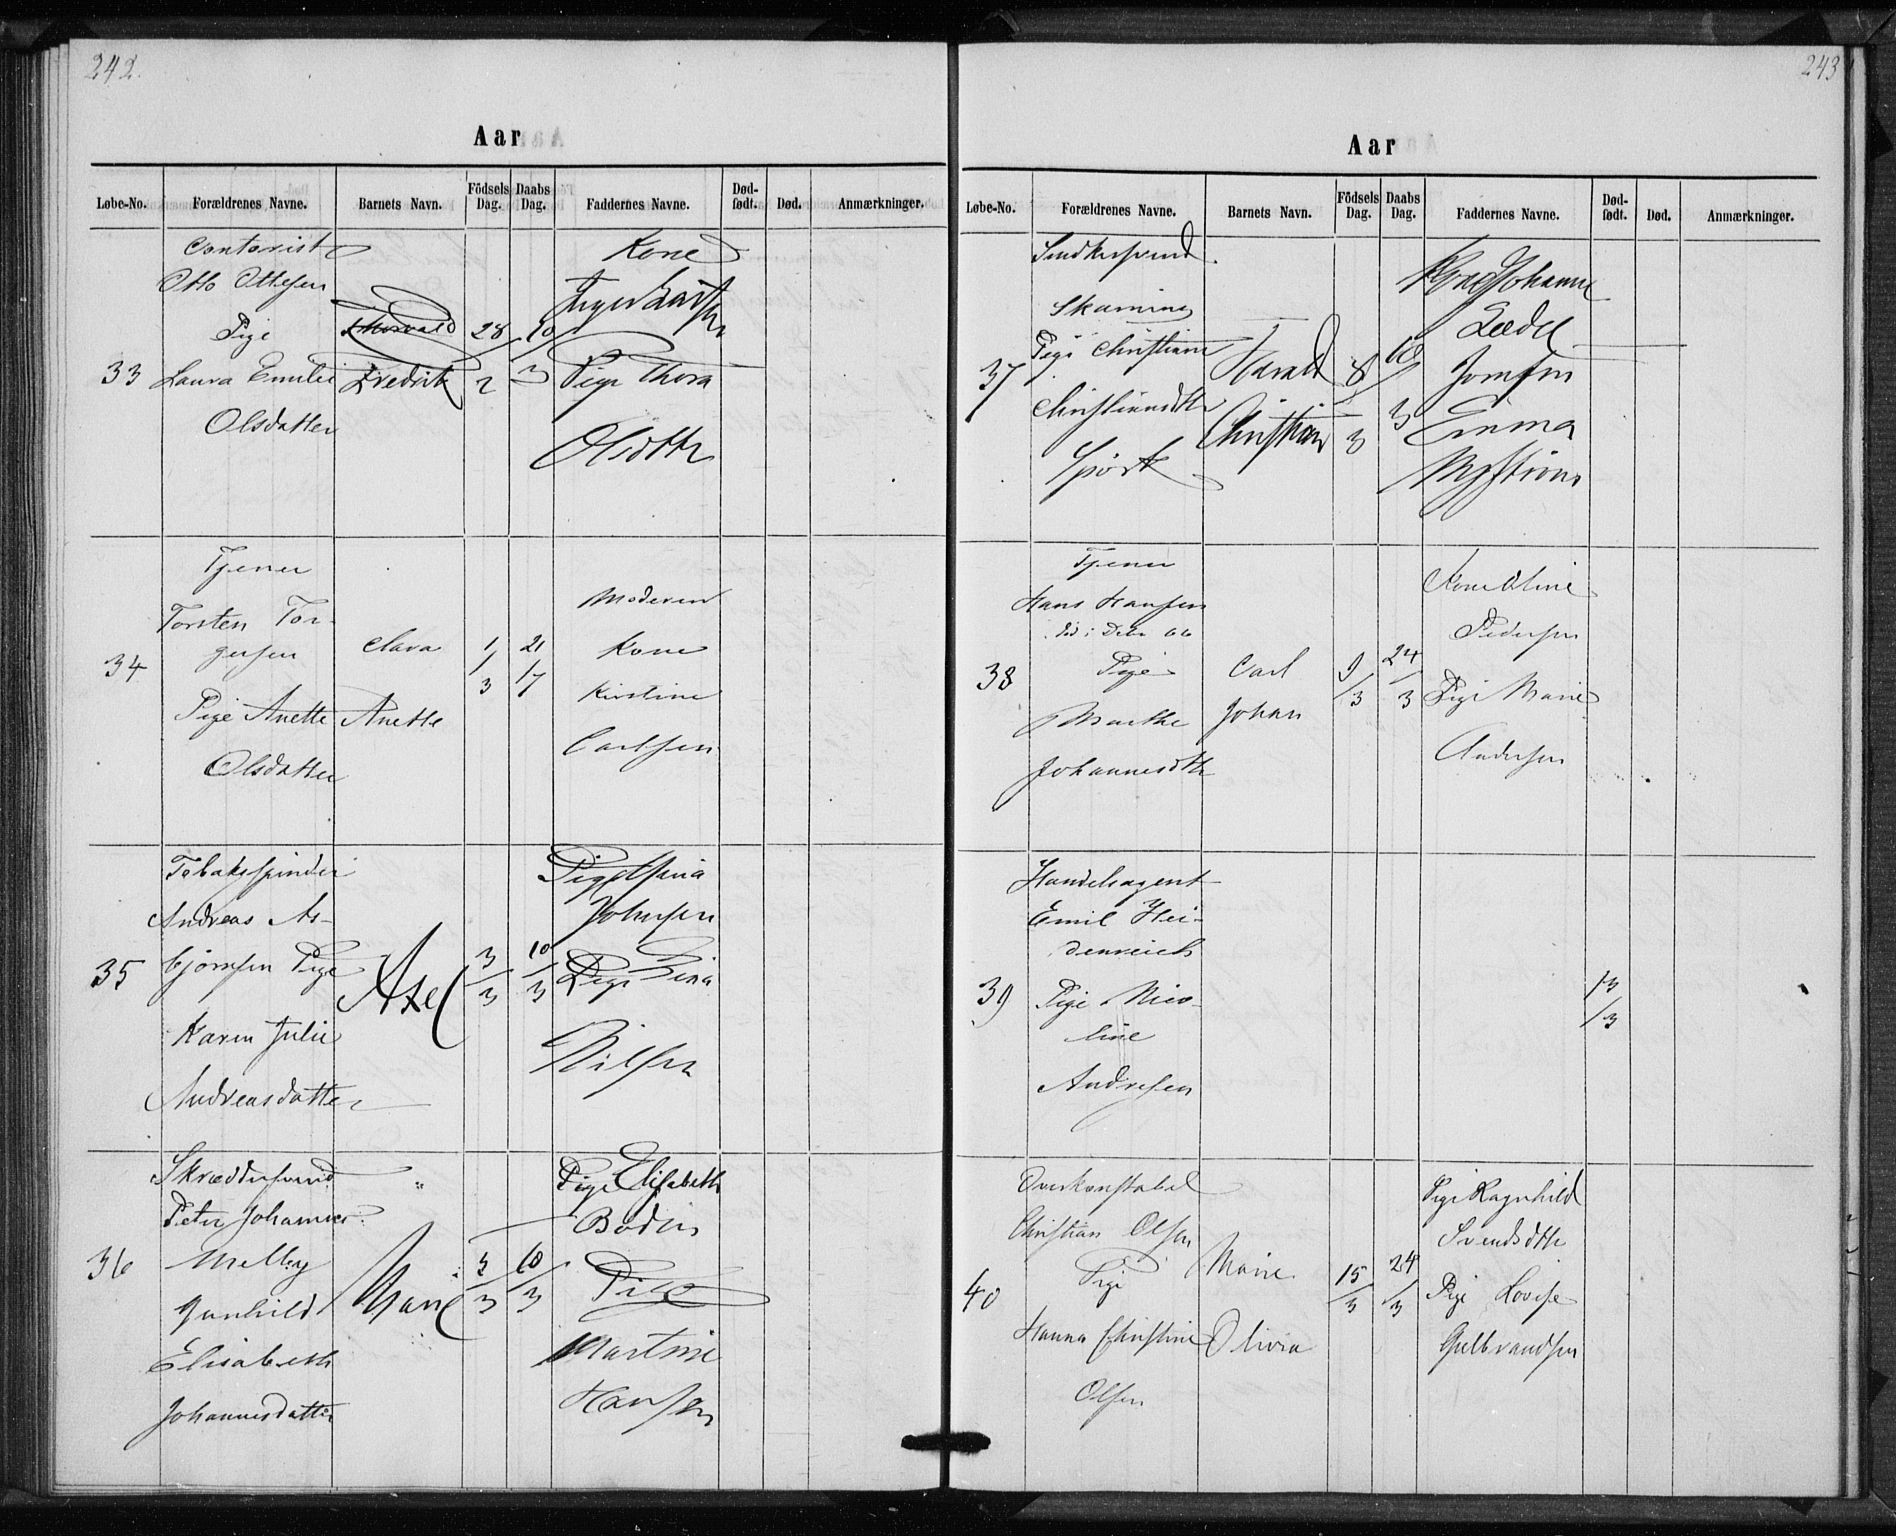 242.
Aar
Løbe-No. Forældrenes Navne. Barnets Navn. Födsels Dag. Daabs Dag. Faddernes Navne. Død-født. Død. Anmærkninger.
Contorist
Otto Ottesen
Pige
33 Laura Emilie
Olsdatter
Thorvald
Fredrik
28/2
10/3
Kone
Inger Larsen
Pige Thora
Olsdtr
34
Tjener
Torsten Tor-
gersen
Pige Anette
Olsdatter
Clara
Anette
1/3
21/7
Moderen
Kone
Kirstine
Carlsen
35
Tobaksspinder
Andreas As-
bjørnsen Pige
Karen Julie
Andreasdatter
Axel
3/3
10/3
Pige
Johnsen
Pige Lina
Nilsen
36
Skræddersvend
Peter Johannes
Melby
Gunhild
Elisabeth
Johannesdatter
3/3
10/3
Pige Elisabeth
Bodin
Pige
Martine
Hansen
243
Aar
Løbe-No. Forældrenes Navne. Barnets Navn. Födsels Dag. Daabs Dag. Faddernes Navne. Død-født. Død. Anmærkninger.
37
Pige Christiane
Christiansdtr
Harald
Christian
8/3
10/3
Kone Johanne
Jomfru
Emma
Nystrøm
38
Tjener
Hans Hansen
død i Debr 66
Pige
Marthe
Johannesdtr
Carl
Johan
9/3
24/3
Kone Oline
Pedersen
Pige Marie
Andersen
39
Handelsagent
Emil Hei-
denreich
Pige Nico-
line
Andresen
13/3
40
Overkonstabel
Christian Olsen
Pige
Hanna Christine
Olsen
Marie
Olivia
15/3
24/3
Pige Ragnhild
Svendsdtr
Pige Lovise
Gulbrandsen